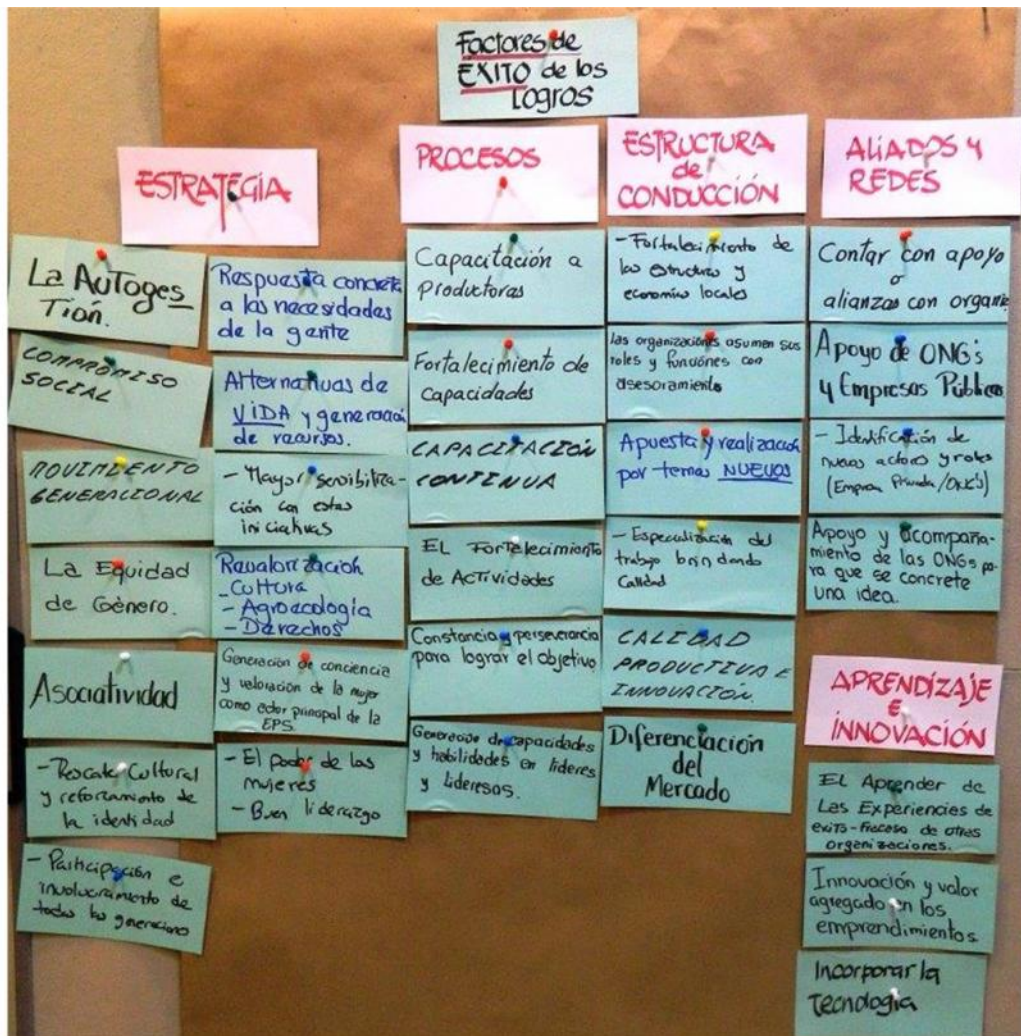 Factores de
ÉXITO de los
LOGROS
ESTRATEGIA
La AuToges
Tión.
COMPROMISO
SOCIAL
MOVIMIENTO
GENERACIONAL
La Equidad
de Género.
Asociatividad
- Rescate Cultural
y reforzamiento de
la identidad
- Participación e
involucramiento de
todas las generaciones
Respuesta concreta
a las necesidades
de la gente
Alternativas de
VIDA y generación
de recursos.
- Mayor sensibiliza-
ción con estas
iniciativas
Revalorización
- Cultura
- Agroecología
- Derechos
Generación de conciencia
y valoración de la mujer
como actor principal de la
EPS.
- El poder de las
mujeres
- Buen liderazgo
PROCESOS
Capacitación a
productoras
Fortalecimiento de
Capacidades
CAPACITACIÓN
CONTINUA
EL Fortalecimiento
de Actividades
Constancia y perseverancia
para lograr el objetivo
Generación de capacidades
y habilidades en líderes
y lideresas.
ESTRUCTURA
de
CONDUCCIÓN
- Fortalecimiento de
las estructuras y
economías locales
las organizaciones asumen sus
roles y funciones con
asesoramiento
Apuesta y realización
por temas NUEVOS
- Especialización del
trabajo brindando
Calidad
CALIDAD
PRODUCTIVA E
INNOVACIÓN.
Diferenciación
del
Mercado
ALIADOS y
REDES
Contar con apoyo
o
alianzas con organis
Apoyo de ONG's
y Empresas Públicas
- Identificación de
nuevos actores y roles
(Empresa Privada/ONG's)
Apoyo y acompaña-
miento de las ONGs pa
ra que se concrete
una idea.
APRENDIZAJE
E
INNOVACIÓN
EL Aprender de
Las Experiencies de
exito-fracaso de otras
organizaciones.
Innovación y valor
agregado en los
emprendimientos
Incorporar la
Tecnología